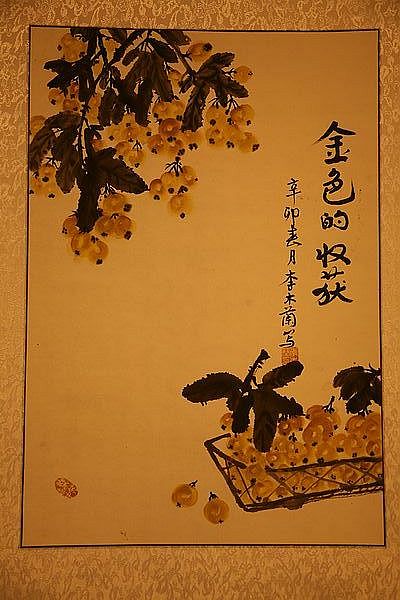 金色的收获
辛卯春月李木蘭写